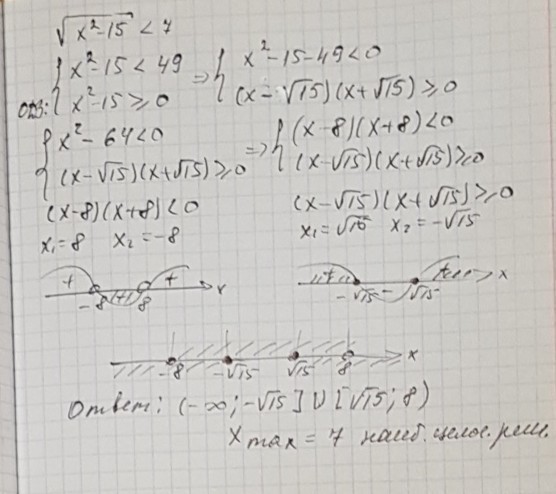 √(x²-15) < 7
{ x²-15 < 49 => { x²-15-49<0
ОДЗ: { x²-15 ≥ 0 (x-√15)(x+√15) ≥ 0
{ x²-64<0 => { (x-8)(x+8)<0
(x-√15)(x+√15) ≥ 0 (x-√15)(x+√15) ≥ 0
(x-8)(x+8)<0 (x-√15)(x+√15) ≥ 0
x₁=8 x₂=-8 x₁=√15 x₂=-√15
+ -8 8 + x + -√15 - √15 + x
-8 -√15 √15 8 x
Ответ: (-∞; -√15] U [√15; 8)
x max = 7 наиб. целое. реш.